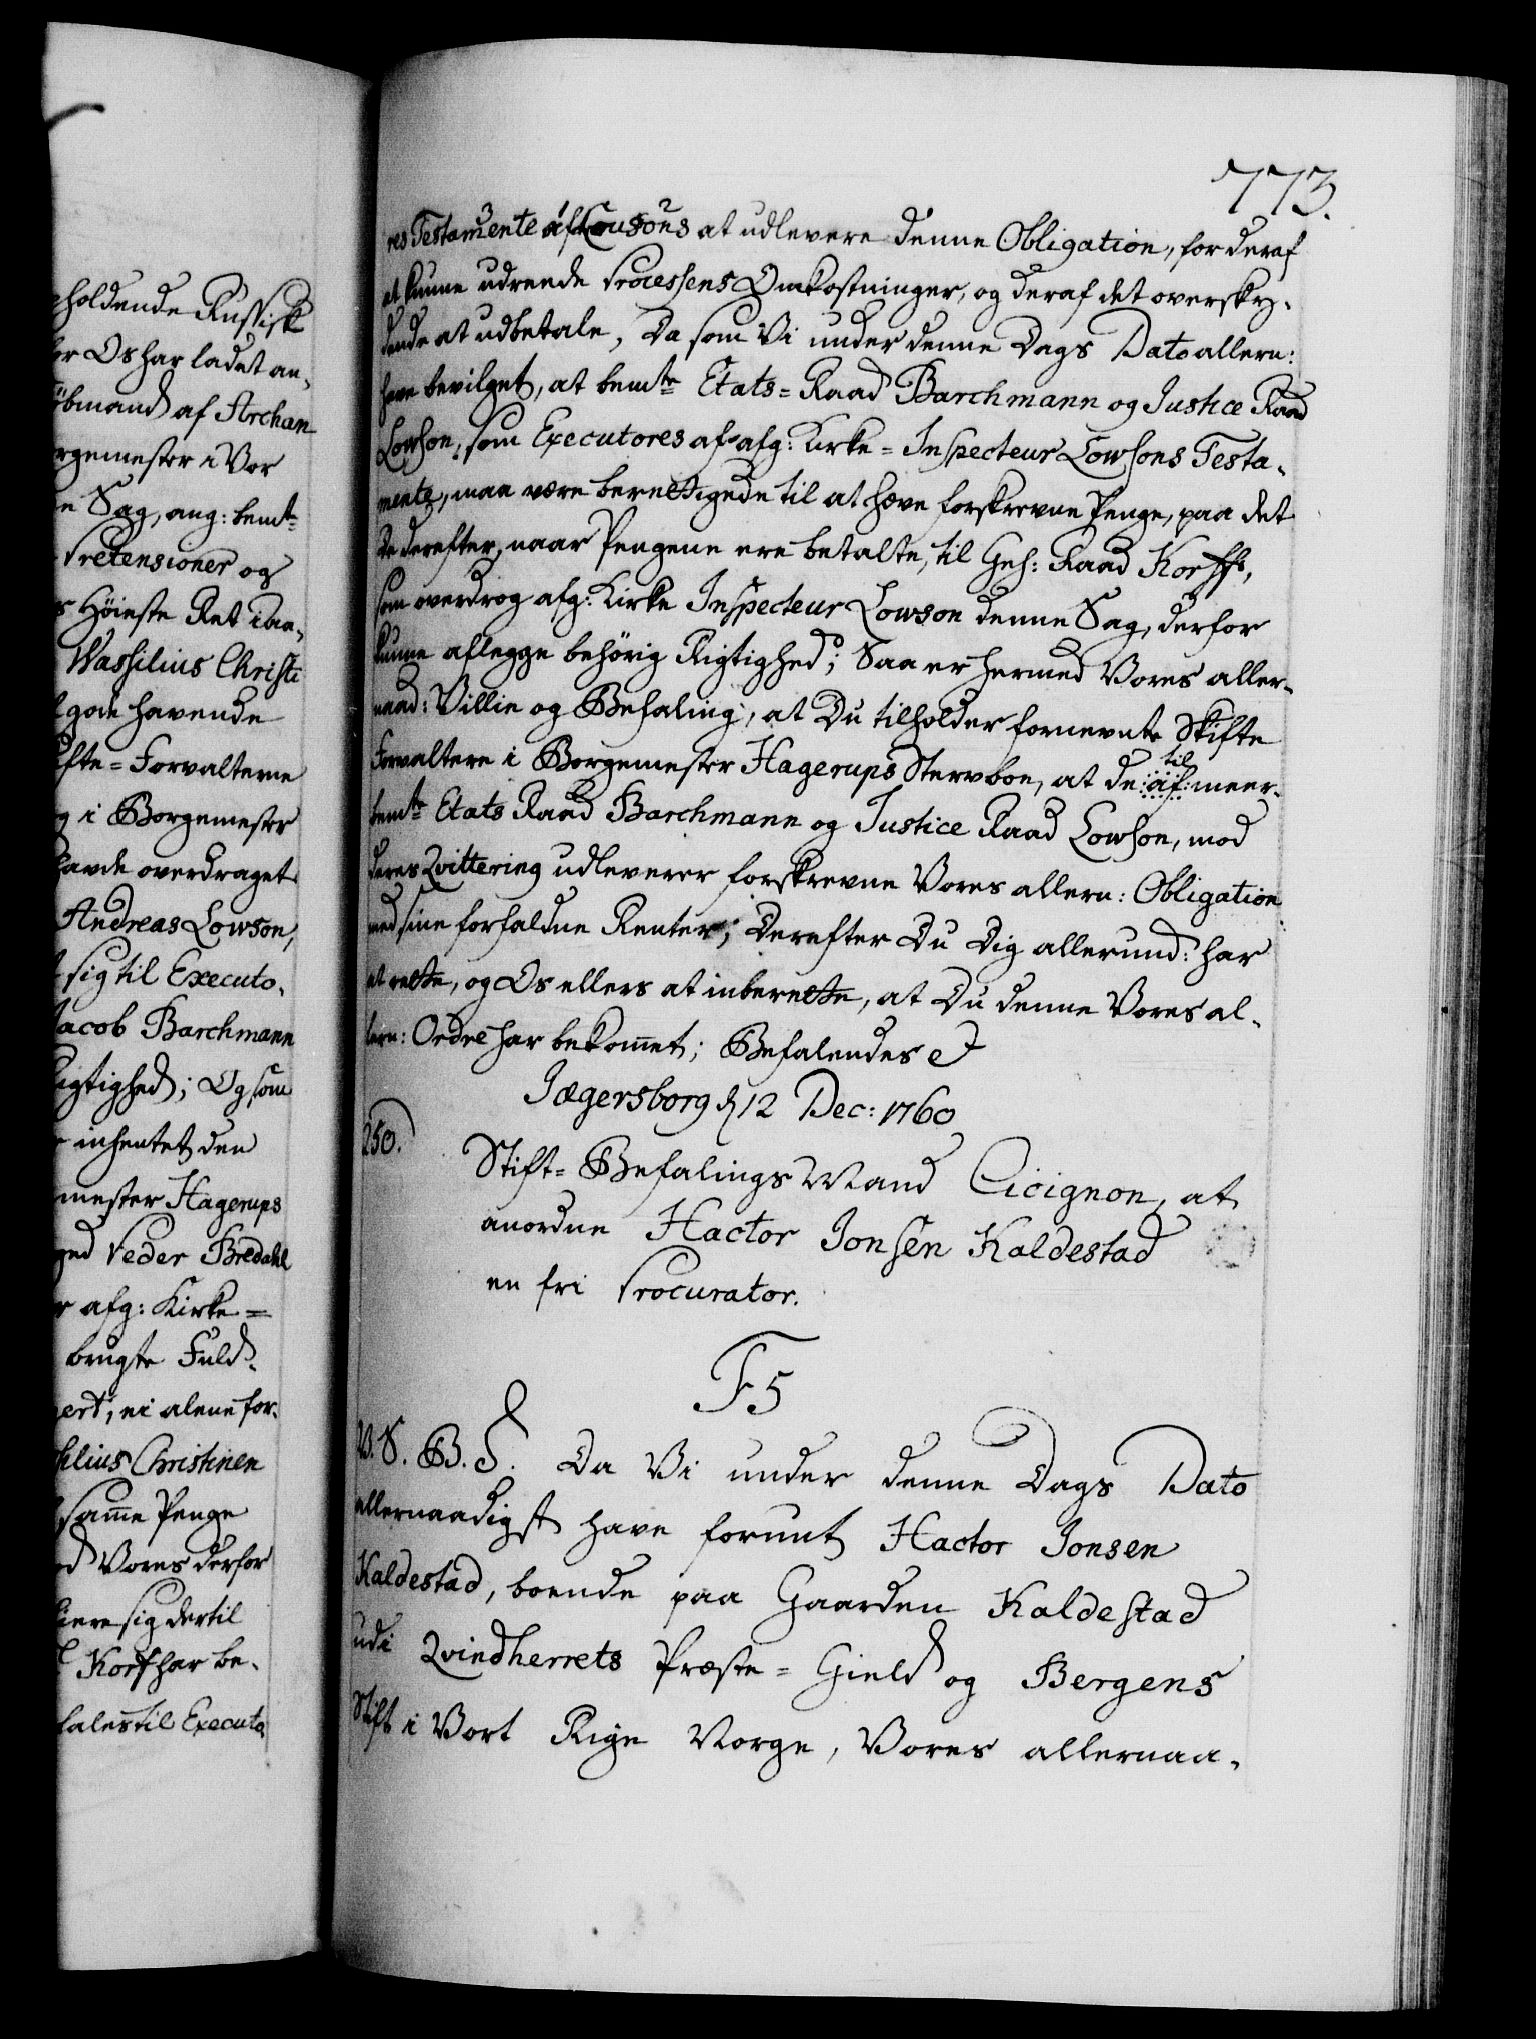 holdende Russisk
for Os har ladet an-
kiöbmand af Archan
borgemester i Vor
Sag, ang: bemte
Prætensioner og
s Höieste Ret i
Wassilius Christi
gode havende
Skifte=Forvalterne
og i Borgemester
havde overdraget
Andreas Lowson,
sig til Executo-
Jacob Barchmann
Rigtighed; Og som
inhentet den
mester Hagerups
Peder Bredahl
afg: Kirke=
brugte Fuld-
ei alene for-
silius Christinen
samme Penge
Vores derfor
sig dertil
Korff har be-
befales til Executo
773.
res Testamente af Lowsons at udlevere denne Obligation, for deraf
at kunne udreede Processens Omkostninger, og deraf det oversky-
dende at udbetale, Da som Vi under denne Dags Dato allern:
have bevilget, at bemte Etats=Raad Barchmann og Justice Raad
Lowson, som Executores af afg: Kirke=Inspecteur Lowsons Testa-
mente, maa være berettigede til at hæve forskrevne Penge, paa det
De derefter, naar Pengene ere betalte, til Geh: Raad Korffs,
som overdrog afg: Kirke Inspecteur Lowson denne Sag, derfor
kunne aflegge behörig Rigtighed; Saa er hermed Vores aller-
naad: Villie og Befaling, at Du tilholder fornevnte Skifte
Forvaltere i Borgemester Hagerups Sterboe, at de af til meer-
bemte Etats Raad Barchmann og Justice Raad Lowson, mod
deres Qvittering udleverer forskrevne Vores allern: Obligation
med sine forfaldne Renter; Derefter Du Dig allerund: har
at rette, og Os ellers at inberette, at Du denne Vores al-
lern: Ordre har bekommet; Befalendes
Jægersborg d 12 Dec: 1760
250.
Stift=Befalings Mand Cicignon, at
anordne Hactor Jonsen Kaldestad
en fri Procurator.
F5
V. S. B. G. Da Vi under denne Dags Dato
allernaadigst have forunt Hactor Jonsen
Kaldestad, boende paa Gaarden Kaldestad
udi Qvindherrets Præste=Gield og Bergens
Stift i Vort Rige Norge, Vores allernaa-